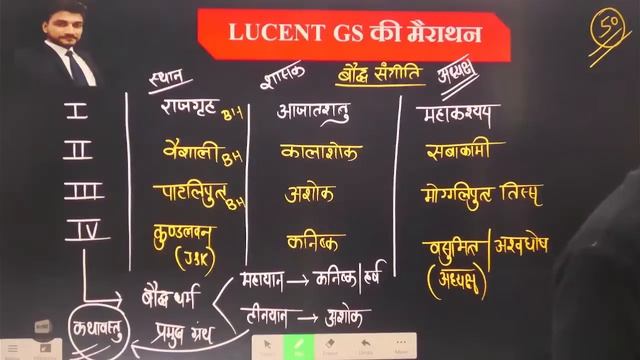 LUCENT GS की मैराथन
50
स्थान शासक बौद्ध संगीति अध्यक्ष
I राजगृह BH आजातशत्रु महाकश्यप
II वैशाली BH कालाशोक सबाकामी
III पाटलिपुत्र BH अशोक मोग्गलिपुत्त तिस्स
IV कुण्डलवन (J&K) कनिष्क वसुमित्र / अश्वघोष (अध्यक्ष)
बौद्ध धर्म महायान → कनिष्क / हर्ष
हीनयान → अशोक
कथावस्तु प्रमुख ग्रंथ